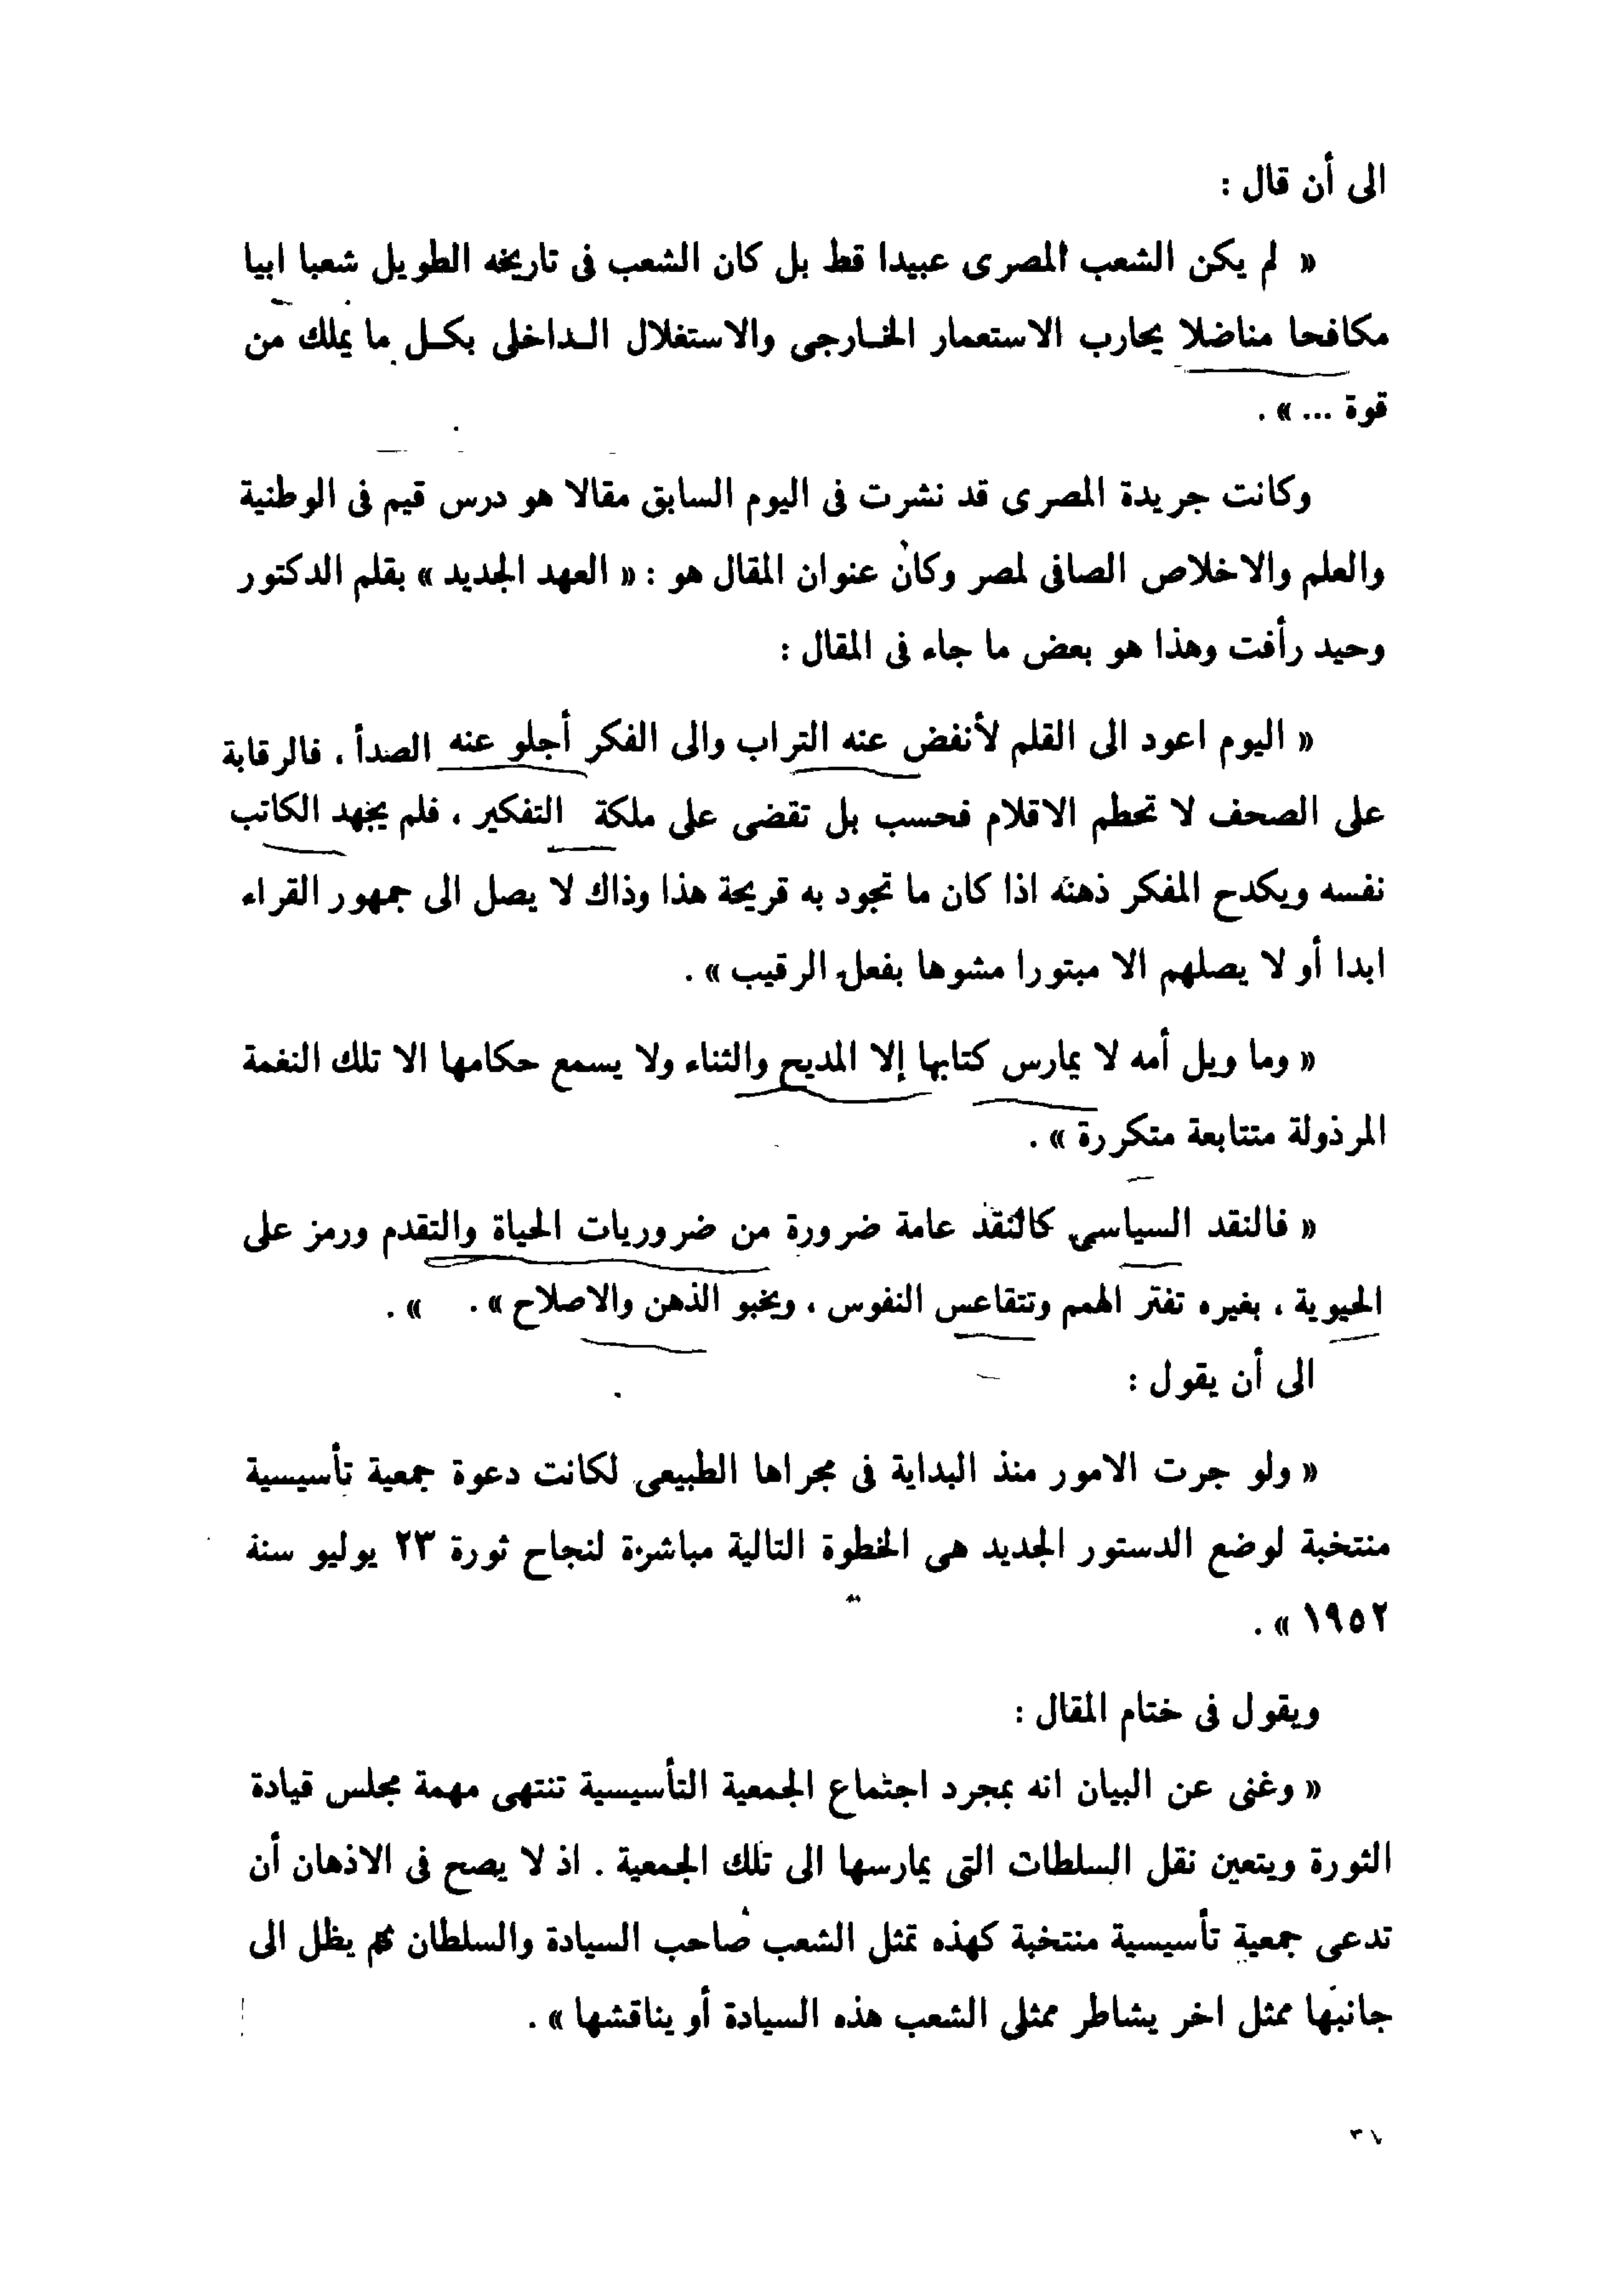 الى أن قال :
« لم يكن الشعب المصرى عبيدا قط بل كان الشعب فى تاريخه الطويل شعبا ابيا
مكافحا مناضلا يحارب الاستعمار الخـارجى والاستغلال الـداخلى بكـل ما يملك من
قوة ... » .
وكانت جريدة المصرى قد نشرت فى اليوم السابق مقالا هو درس قيم فى الوطنية
والعلم والاخلاص الصافى لمصر وكان عنوان المقال هو : « العهد الجديد » بقلم الدكتور
وحيد رأفت وهذا هو بعض ما جاء فى المقال :
« اليوم اعود الى القلم لأنفض عنه التراب والى الفكر أجلو عنه الصدأ ، فالرقابة
على الصحف لا تحطم الاقلام فحسب بل تقضى على ملكة التفكير ، فلم يجهد الكاتب
نفسه ويكدح المفكر ذهنه اذا كان ما تجود به قريحة هذا وذاك لا يصل الى جمهور القراء
ابدا أو لا يصلهم الا مبتورا مشوها بفعل الرقيب » .
« وما ويل أمه لا يمارس كتابها إلا المديح والثناء ولا يسمع حكامها الا تلك النغمة
المرذولة متتابعة متكررة » .
« فالنقد السياسي كالنقد عامة ضرورة من ضروريات الحياة والتقدم ورمز على
الحيوية ، بغيره تفتر الهمم وتتقاعس النفوس ، ويخبو الذهن والاصلاح » . » .
الى أن يقول :
« ولو جرت الامور منذ البداية فى مجراها الطبيعى لكانت دعوة جمعية تأسيسية
منتخبة لوضع الدستور الجديد هى الخطوة التالية مباشرة لنجاح ثورة ٢٣ يوليو سنة
١٩٥٢ » .
ويقول فى ختام المقال :
« وغنى عن البيان انه بمجرد اجتماع الجمعية التأسيسية تنتهى مهمة مجلس قيادة
الثورة ويتعين نقل السلطات التى يمارسها الى تلك الجمعية . اذ لا يصح فى الاذهان أن
تدعى جمعية تأسيسية منتخبة كهذه تمثل الشعب صاحب السيادة والسلطان ثم يظل الى
جانبها ممثل اخر يشاطر ممثلى الشعب هذه السيادة أو يناقشها » .